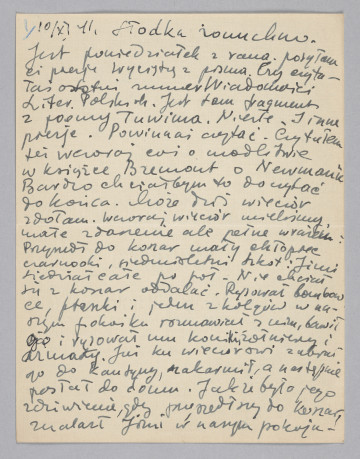 1) 10/XI. 41. Słodka
Jest poniedziałek z rana. posyłam
ci poezję wyciętą z pisma. Czy czyta-
łaś ostatni numer Wiadomości
Liter. Polskich. Jest tam fragment
z poematu Tuwima. Nieźle. I inne
poezje. Powinnaś czytać. Czytałem
też wczoraj coś o modlitwie
w książce Bremont o Newmanie
Bardzo chciałbym to doczytać
do końca. Może dziś wieczór
zdołam. Wczoraj wieczór mieliśmy
małe zdarzenie ale pełne wrażeń:
Przyszedł do koszar mały chłopiec
czarnooki, siedmioletni Szkot. Jimi
siedział całe po poł. Nie chciał
się z koszar oddalać. Rysował bombow-
ce, ptaki i jeden z kolegów w na-
szym pokoiku rozmawiał z nim, bawił
go i rysował mu konie, żołnierzy i
armaty. Już ku wieczorowi zabrał
go do kantyny, nakarmił, a następnie
posłał do domu. Jakże było jego
zdziwienie, gdy przyszedłszy do koszar
znalazł Jimi w naszym pokoju-